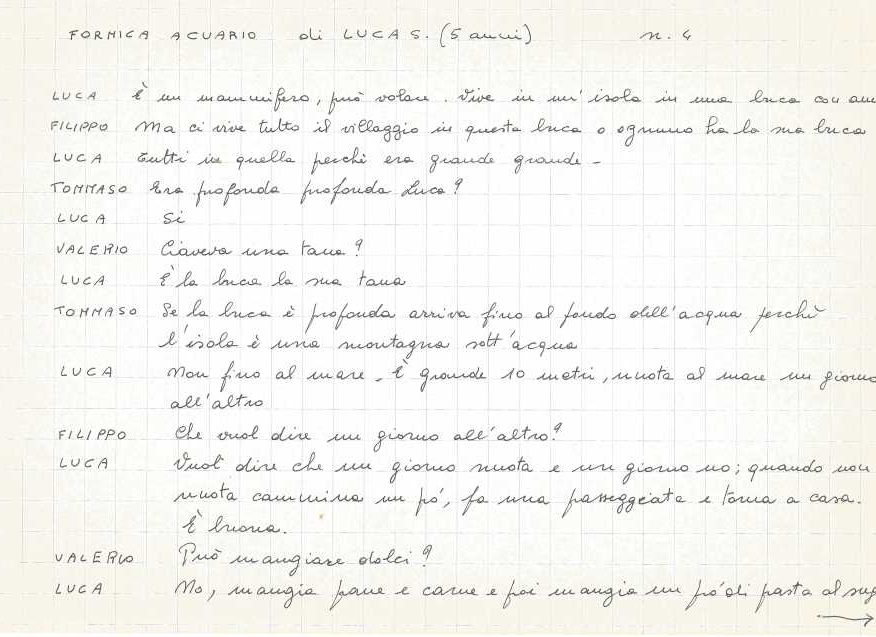 FORMICA ACUARIO di LUCA S. (5 anni) n. 4
LUCA È un mammifero, può volare. Vive in un'isola in una buca con
FILIPPO Ma ci vive tutto il villaggio in questa buca o ognuno ha la sua buca
LUCA Tutti in quella perchè era grande grande -
TOMMASO Era profonda profonda Luca?
LUCA Si
VALERIO Ciaveva una tana?
LUCA È la buca la sua tana
TOMMASO Se la buca è profonda arriva fino al fondo dell'acqua perchè
l'isola è una montagna sott'acqua
LUCA Non fino al mare. È grande 10 metri, nuota al mare un giorno
all'altro
FILIPPO Che vuol dire un giorno all'altro?
LUCA Vuol dire che un giorno nuota e un giorno no; quando non
nuota cammina un pó, fa una passeggiata e torna a casa.
È buona.
VALERIO Può mangiare dolci?
LUCA No, mangia pane e carne e poi mangia un pó di pasta al